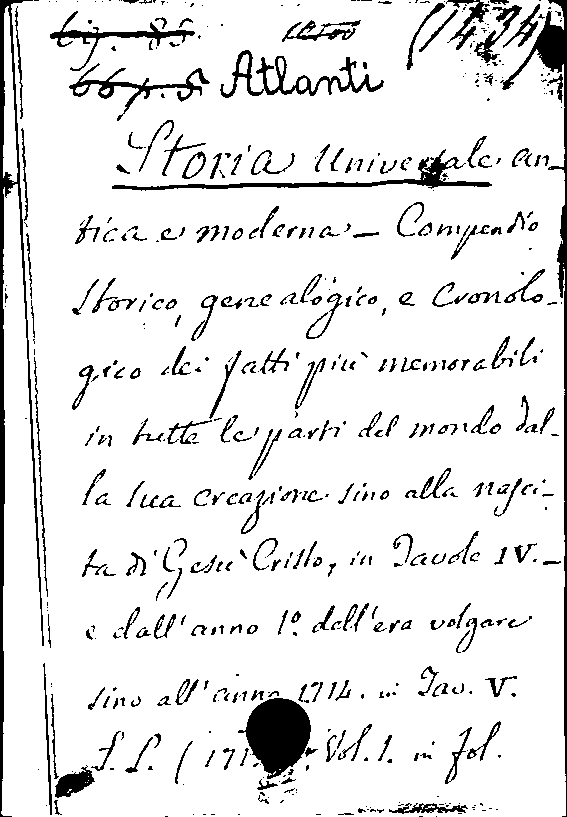 69. 85. (1434)
66 p. 5 Atlanti
Storia Universale an-
tica e moderna - Compendio
Storico, genealógico, e Cronolo-
gico dei fatti più memorabili
in tutte le parti del mondo dal-
la sua creazione sino alla nasci-
ta di Gesù Cristo, in Tavole IV. -
e dall'anno 1º. dell'era volgare
sino all'anno 1714. in Tav. V.
S. L. (171 Vol. 1. in fol.